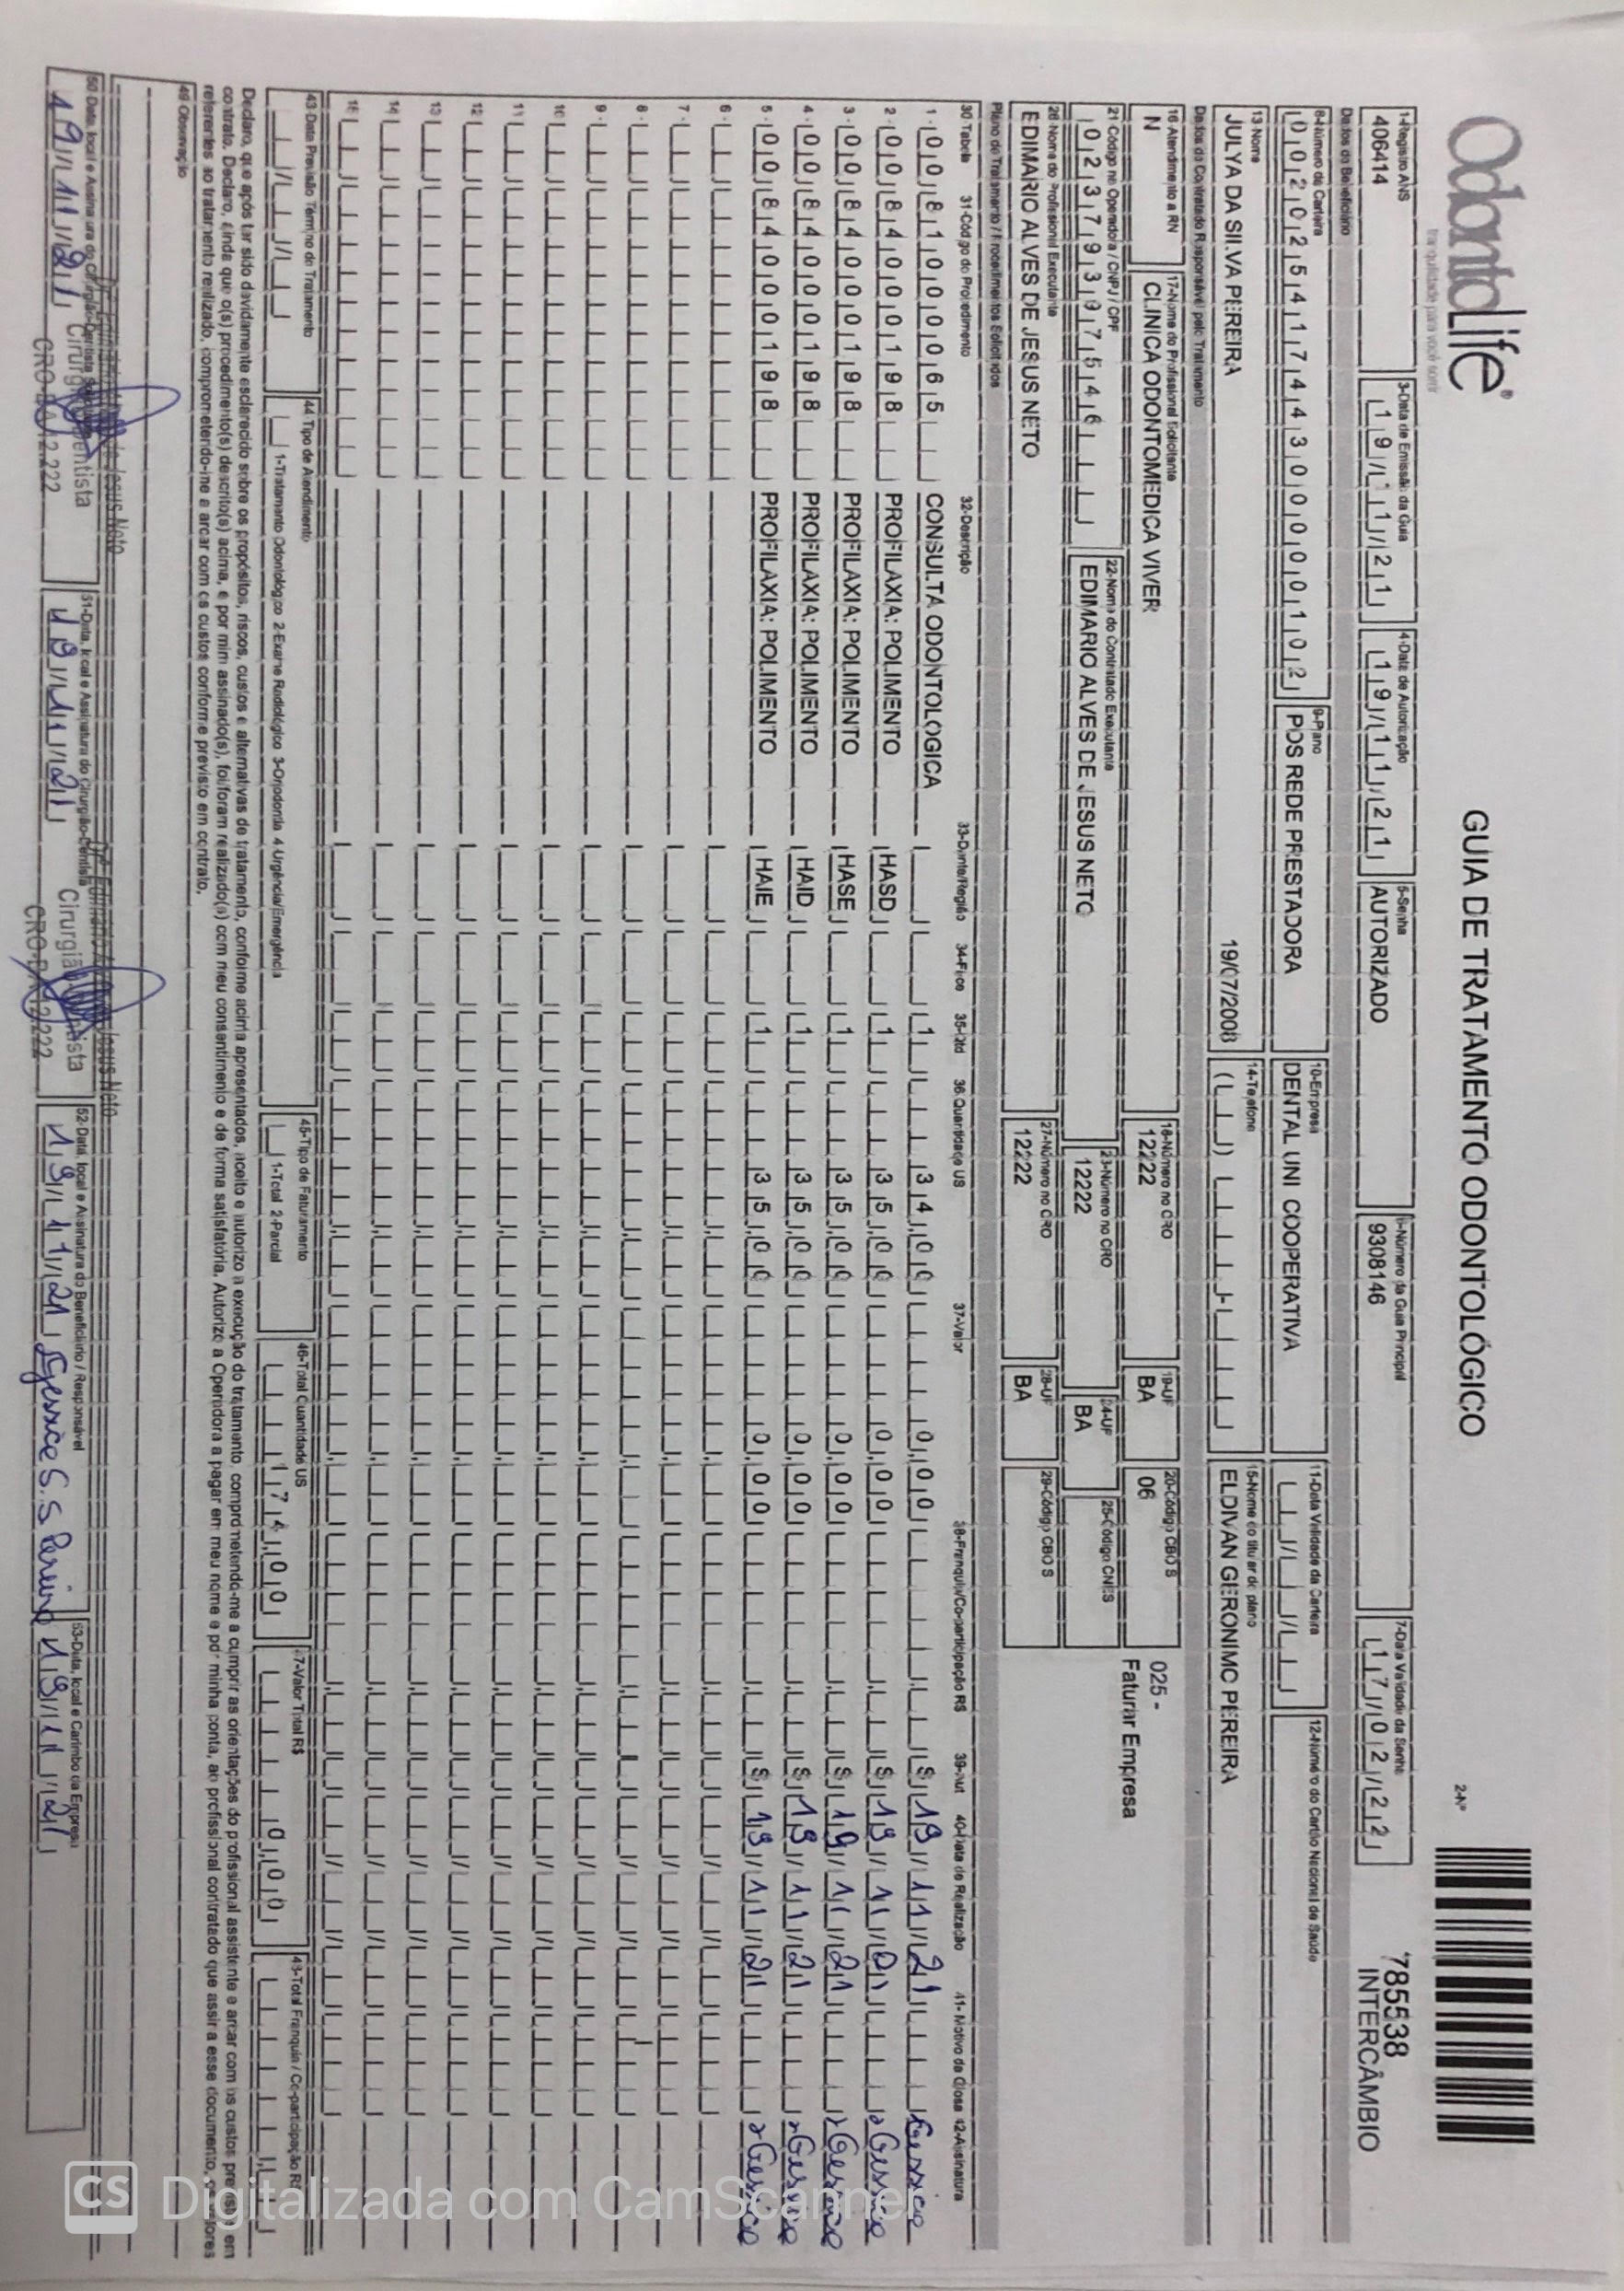 OdontoLife®
tranquilidade para você sorrir
GUIA DE TRATAMENTO ODONTOLÓGICO
2-Nº
785538
INTERCÂMBIO
1-Registro ANS 3-Data de Emissão da Guia 4-Data de Autorização 5-Senha 6-Número da Guia Principal 7-Data Validade da Senha
406414 19/11/21 19/11/21 AUTORIZADO 9308146 17/02/22
Dados do Beneficiário
8-Número da Carteira 9-Plano 10-Empresa 11-Data Validade da Carteira 12-Número do Cartão Nacional de Saúde
00202541744300000102 POS REDE PRESTADORA DENTAL UNI COOPERATIVA
13 Nome 14-Telefone 15-Nome do titular do plano
JULYA DA SILVA PEREIRA 19/07/2008 ELDIVAN GERONIMO PEREIRA
Dados do Contratado Responsável pelo Tratamento
16 Atendimento a RN 17-Nome do Profissional Solicitante 18-Número no CRO 19-UF 20-Código CBO S
N CLINICA ODONTOMEDICA VIVER 12222 BA 06
025 -
Faturar Empresa
21 Código na Operadora / CNPJ / CPF 22-Nome do Contratado Executante 23-Número no CRO 24-UF 25-Código CNES
02379393975546 EDIMARIO ALVES DE JESUS NETO 12222 BA
26 Nome do Profissional Executante 27-Número no CRO 28-UF 29-Código CBO S
EDIMARIO ALVES DE JESUS NETO 12222 BA
Plano de Tratamento / Procedimentos Solicitados
30 Tabela 31-Código do Procedimento 32-Descrição 33-Dente/Região 34-Face 35-Qtd 36 Quantidade US 37-Valor 38-Franquia/Co-participação R$ 39-Aut 40-Data de Realização 41-Motivo da Glosa 42-Assinatura
1 - 00 81000065 CONSULTA ODONTOLOGICA 1 34,00 0,00 S 19/11/21 Gessica
2 - 00 84000198 PROFILAXIA: POLIMENTO HASD 1 35,00 0,00 S 19/11/21 Gessica
3 - 00 84000198 PROFILAXIA: POLIMENTO HASE 1 35,00 0,00 S 19/11/21 Gessica
4 - 00 84000198 PROFILAXIA: POLIMENTO HAID 1 35,00 0,00 S 19/11/21 Gessica
5 - 00 84000198 PROFILAXIA: POLIMENTO HAIE 1 35,00 0,00 S 19/11/21 Gessica
6 -
7 -
8 -
9 -
10
11
12
13
14
15
43-Data Previsão Término do Tratamento 44 Tipo de Atendimento 45-Tipo de Faturamento 46-Total Quantidade US 47-Valor Total R$ 43-Total Franquia / Co-participação R$
1-Tratamento Odontológico 2-Exame Radiológico 3-Ortodontia 4 Urgência/Emergência 1-Total 2-Parcial 174,00 0,00
Declaro, que após ter sido devidamente esclarecido sobre os propósitos, riscos, custos e alternativas de tratamento, conforme acima apresentados, aceito e autorizo a execução do tratamento, comprometendo-me a cumprir as orientações do profissional assistente e arcar com os custos previstos em
contrato. Declaro, ainda que o(s) procedimento(s) descrito(s) acima, e por mim assinado(s), foi/foram realizado(s) com meu consentimento e de forma satisfatória. Autorizo a Operadora a pagar em meu nome e por minha conta, ao profissional contratado que assir a esse documento, os valores
referentes ao tratamento realizado, comprometendo-me a arcar com os custos conforme previsto em contrato.
49 Observação
50-Data, local e Assinatura do Cirurgião-Dentista Solicitante 51-Data, local e Assinatura do Cirurgião-Dentista 52-Data, local e Assinatura do Beneficiário / Responsável 53-Data, local e Carimbo da Empresa
19/11/21 19/11/21 19/11/21 Gessica S. S Pereira 19/11/21
de Jesus Neto
Cirurgião Dentista
CRO-BA 12.222
Dr. Edimario Alves de Jesus Neto
Cirurgião Dentista
CRO-BA 12.222
CS Digitalizada com CamScanner